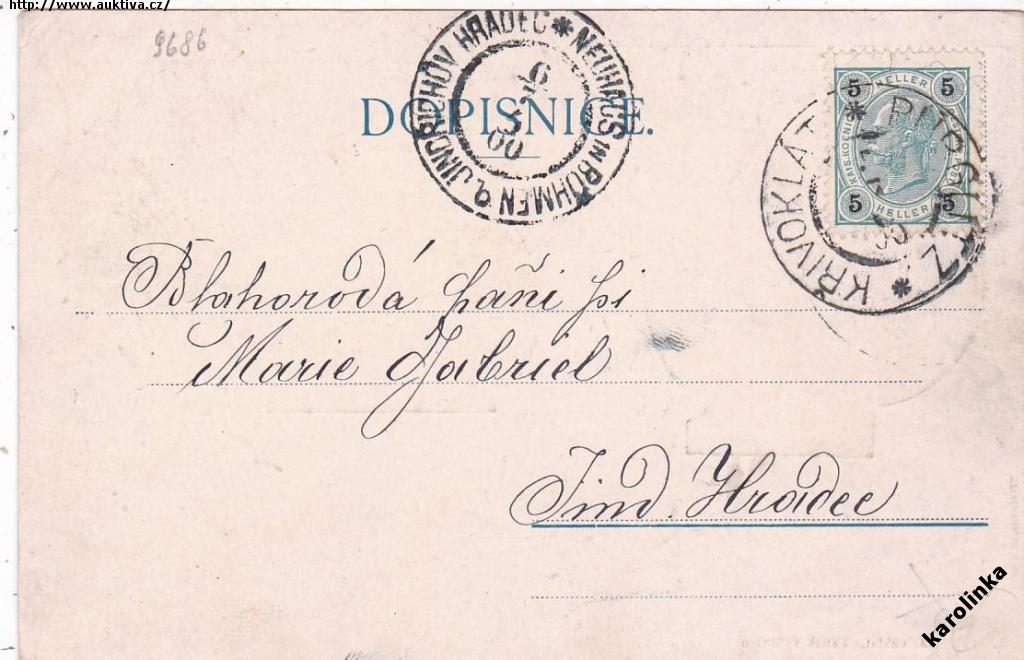 http://www.auktiva.cz/
9686
DOPISNICE.
JINDŘICHŮV HRADEC * NEUHAUS IN BÖHMEN
6
5
00
5 HELLER 5
5 HELLER 5
KŘIVOKLÁT * PÜRGLITZ *
Blahorodá paňi pí
Marie Gabriel
Jind. Hradec
karolinka